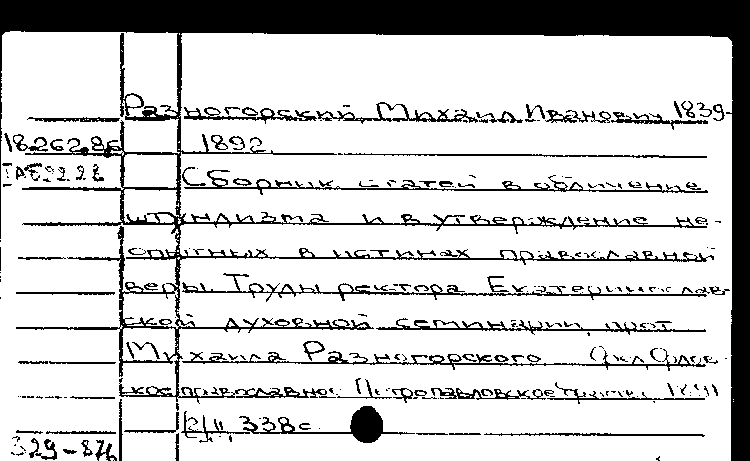 Разногорский, Михаил Иванович, 1839-
18.262.86 1892.
Сборник статей в обличение
штундизма и в утверждение не-
опытных в истинах православной
веры. Труды ректора Екатеринослав-
ской духовной семинарии, прот.
Михаила Разногорского.
кое православное Петропавловское 1891
[2], II, 338 с.
329-876